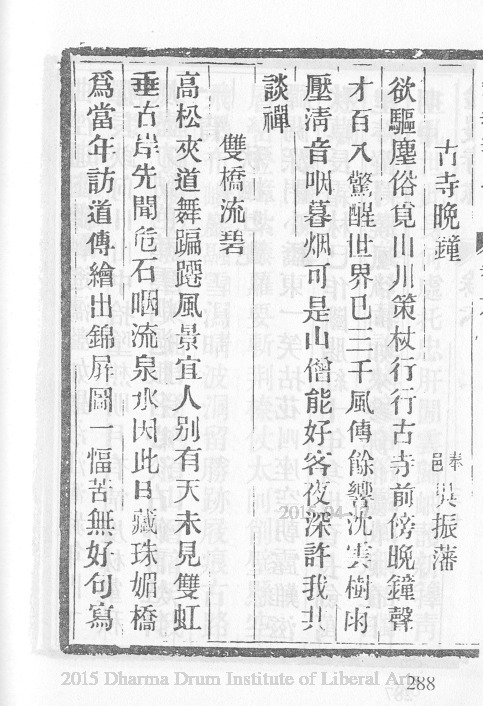 古寺晚鐘
奉邑 吳振藩
欲驅塵俗覓山川策杖行行古寺前傍晚鐘聲
才百八驚醒世界已三千風傳餘響沈雲樹雨
壓清音咽暮烟可是山僧能好客夜深許我共
談禪
雙橋流碧
高松夾道舞蹁躚風景宜人别有天未見雙虹
垂古岸先聞危石咽流泉水因此日藏珠媚橋
爲當年訪道傳繪出錦屏圖一幅苦無好句寫
2015 Dharma Drum Institute of Liberal Arts
288